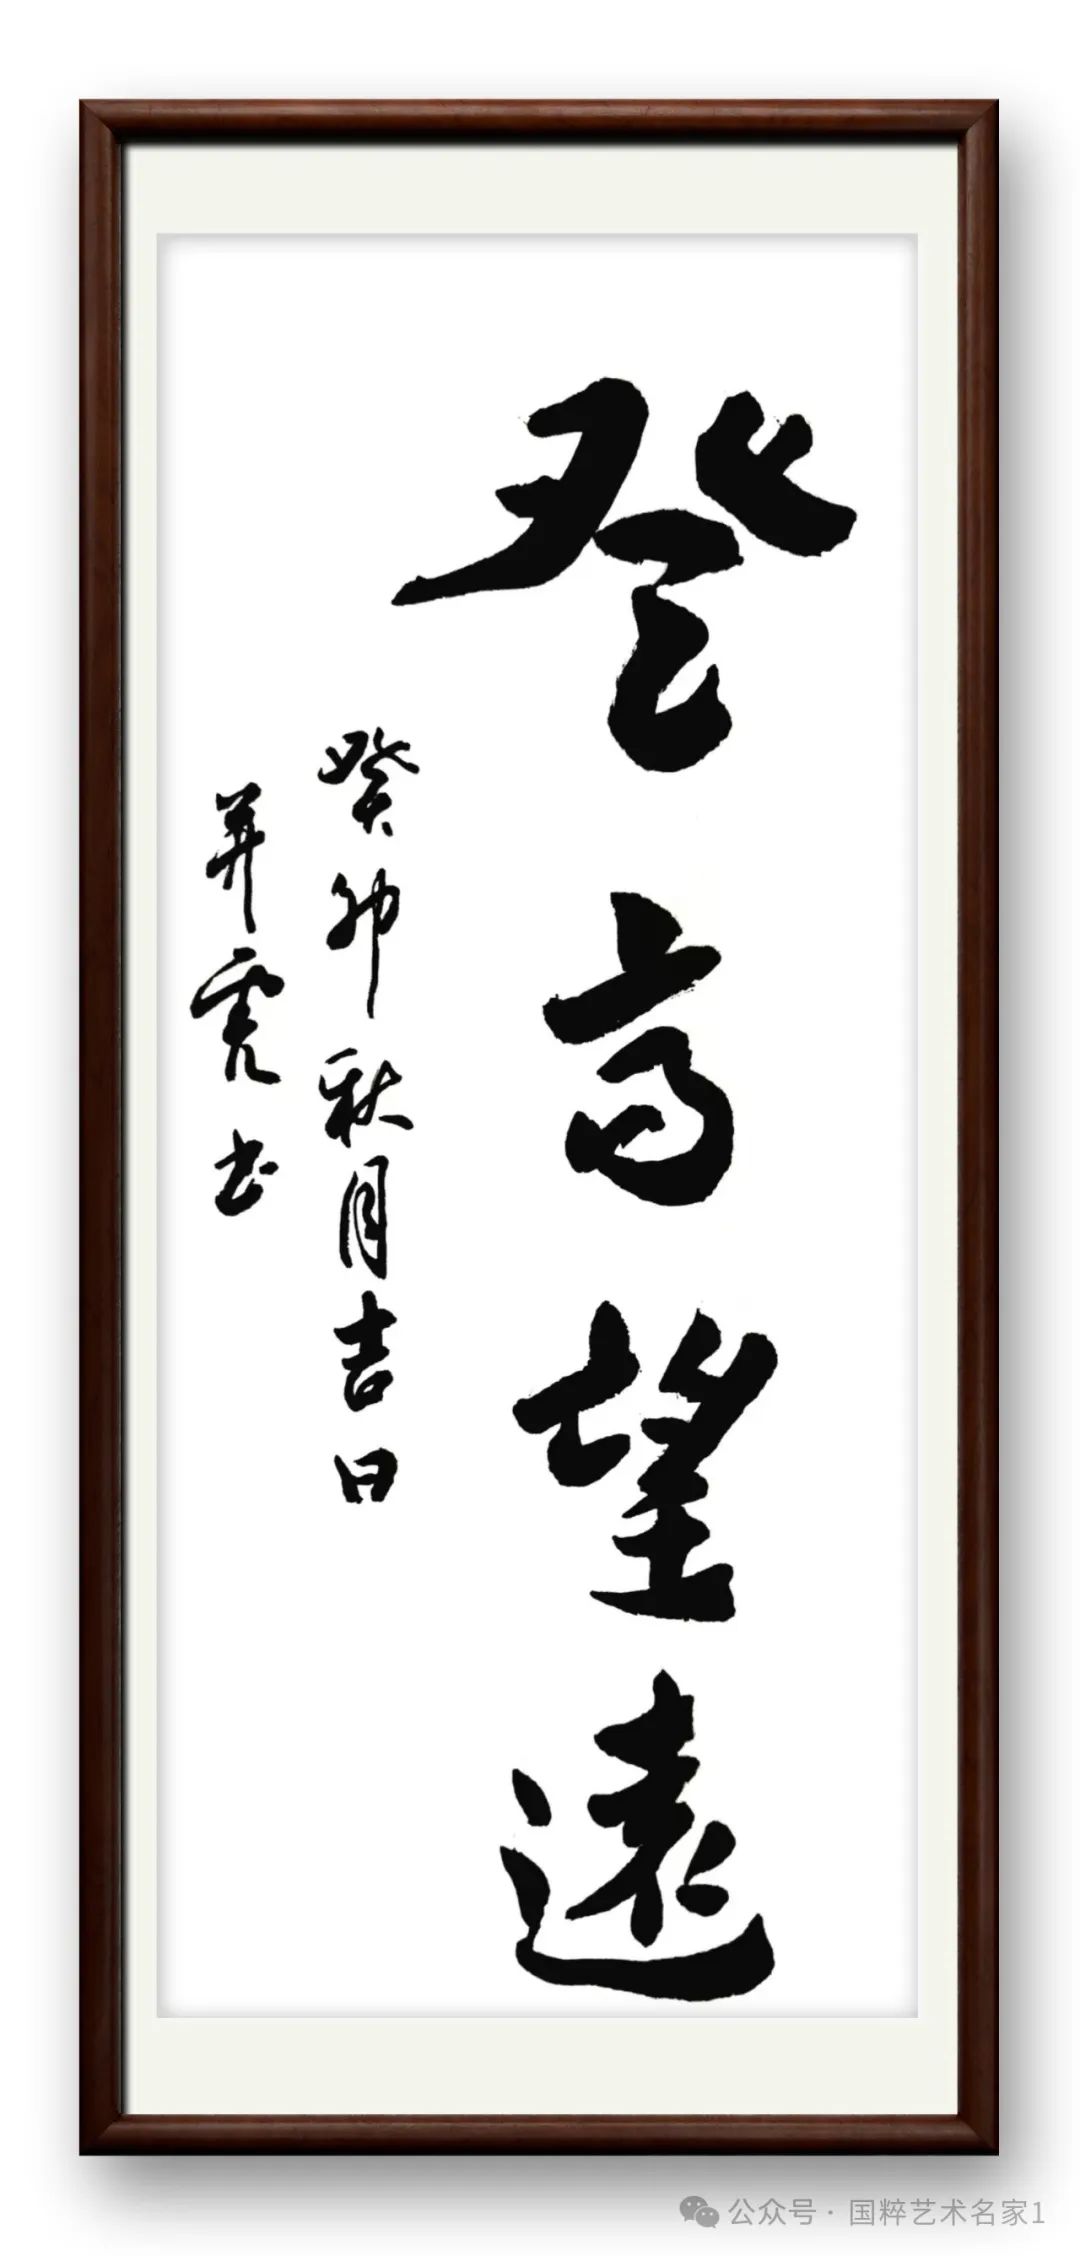 登高望遠
癸卯秋月吉日
羿虎书
公众号 · 国粹艺术名家1